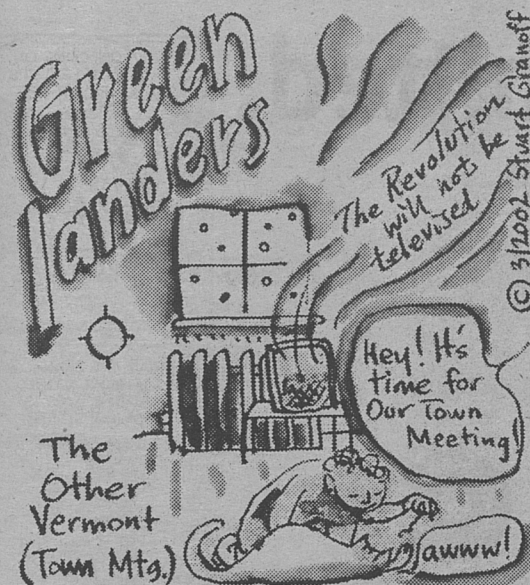 Green
landers
The Revolution
will not be
televised
© 3/2002 Stuart Granoff
Hey! It's
time for
Our Town
Meeting!
The
Other
Vermont
(Town Mtg.)
awww!